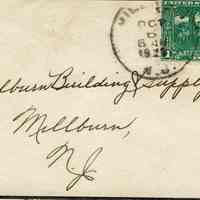 OCT
6
8 AM
N.J.
lburn Building & Supply
Millburn,
N.J.